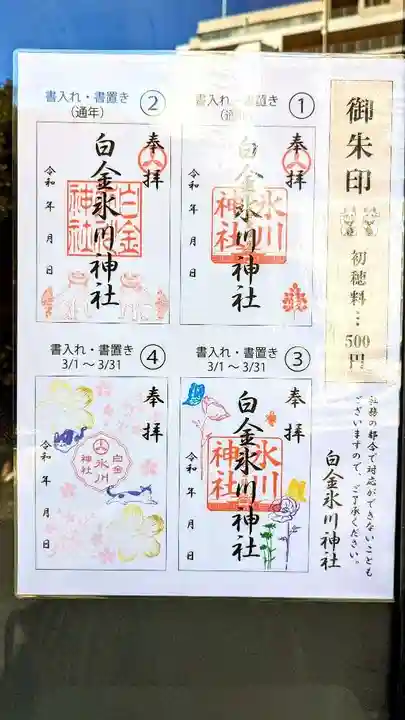 御朱印
初穂料…500円
社務の都合で対応ができないことも
ございますので、ご了承ください。
白金氷川神社
書入れ・書置き
①
奉拝
白金氷川神社
氷川
神社
令和 年 月 日
書入れ・書置き
(通年)
②
奉拝
白金氷川神社
白金
神社
令和 年 月 日
書入れ・書置き
3/1～3/31
③
奉拝
白金氷川神社
氷川
神社
令和 年 月 日
書入れ・書置き
3/1～3/31
④
奉拝
白金
氷川
神社
令和 年 月 日